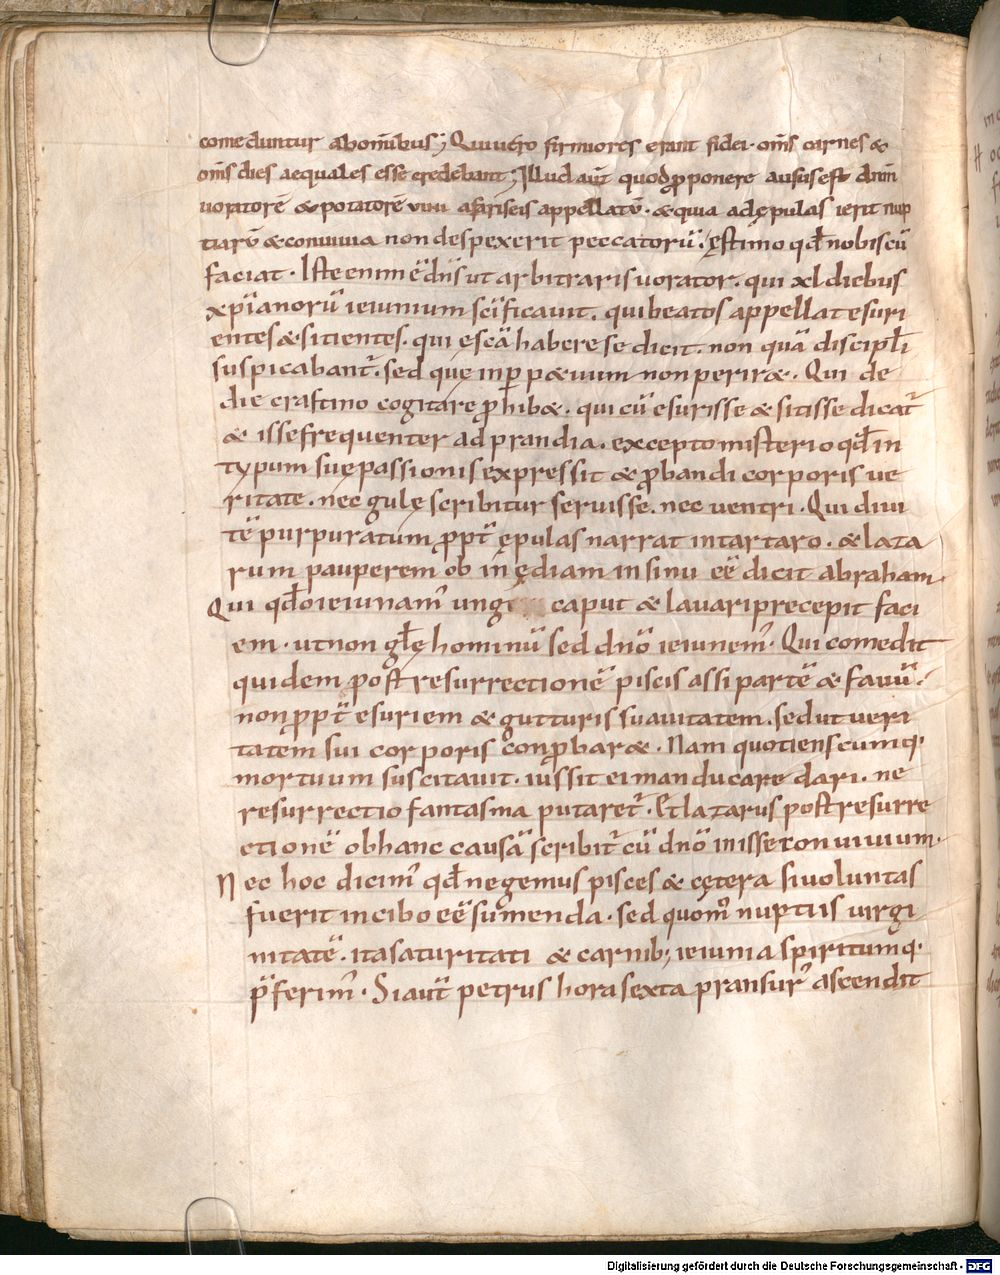 comeduntur abonīībus; Quiuero firmiores erant fidei · om̄s carnes &
om̄s dies aequales esse credebant; Illud aut̄ quod ꝓponere ausus est dn̄m
uoratorē & potatorē uini afariseis appellatū · & quia ad ępulas ierit nup
tiarū & conuiuia non despexerit peccatorū; ęstimo qđ nobiscū
faciat · Iste enim ē dn̄s ut arbitraris uorator · qui xl diebus
xp̄ianorū ieiunium sc̄ificauit · qui beatos appellat esuri
entes & sitientes · qui ęscā habere se dicit · non quā discipl̄i
suspicabant̄ · sed quę inꝑpetuum non perir& · Qui de
die crastino cogitare ꝓhib& · qui cū esurisse & sitisse dicat̄
& isse frequenter ad prandia · excepto misterio qđ in
typum suę passionis expressit & ꝓbandi corporis ue
ritate · nec gulę scribitur seruisse · nec uentri · Qui diui
tē purpuratum ꝓpt̄ ępulas narrat intartaro · & laza
rum pauperem ob inędiam in sinu eē dicit abraham·
Qui qdo ieiunam̄ unge caput & lauari precepit faci
em · ut non gl̄ę hominū sed dn̄o ieiunem̄ · Qui comedit
quidem post resurrectionē piscis assi partē & fauū ·
non ꝓpt̄ esuriem & gutturis suauitatem · sed ut ueri
tatem sui corporis conꝓbar& · Nam quotienscumq·
mortuum suscitauit · iussit ei manducare dari · ne
resurrectio fantasma putaret̄ · Et lazarus post resurre
ctionē ob hanc causā scribit̄ cū dn̄o inisse conuiuium·
Nec hoc dicim̄ qđ negemus pisces & cętera si uoluntas
fuerit in cibo eē sumenda · sed quom̄ nuptiis uirgi
nitatē · ita saturitati & carnib; ieiunia spiritumq·
p̄ferim̄ · Si aut̄ petrus hora sexta pransur̄ ascendit
Digitalisierung gefördert durch die Deutsche Forschungsgemeinschaft - DFG